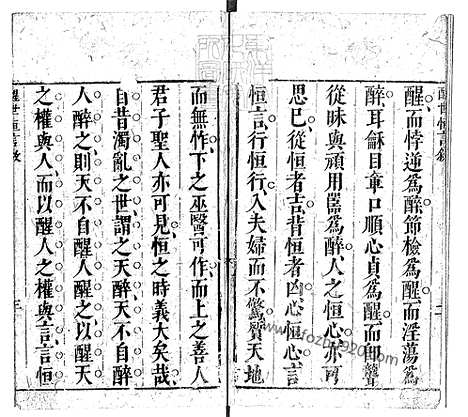 醒世恒言敘
二
醒而悖逆爲醉節檢爲醒而淫蕩爲
醉耳龢目章口順心貞爲醒而卽聾
從昧與頑用嚚爲醉人之恒心亦可
思已從恒者吉背恒者凶心恒心言
恒言行恒行入夫婦而不驚質天地
而無怍下之巫醫可作而上之善人
君子聖人亦可見恒之時義大矣哉
自昔濁亂之世謂之天醉天不自醉
人醉之則天不自醒人醒之以醒天
之權與人而以醒人之權與言言恒
醒世恒言敘
三
www.fozhu920.com